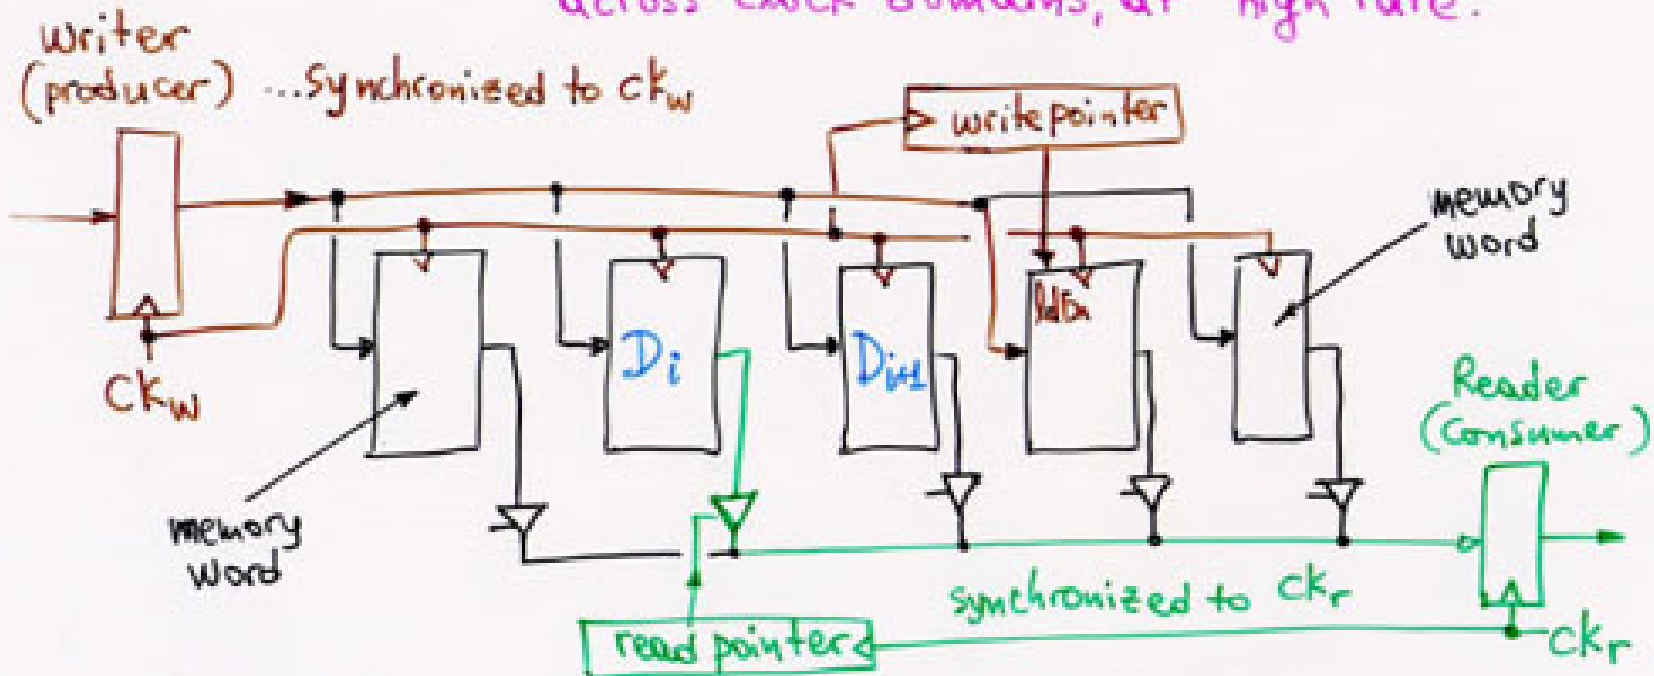 across clock domains, at high rate.
writer
(producer) ...synchronized to ckw
writepointer
memory
word
Di
Di+1
ckw
Reader
(Consumer)
memory
word
synchronized to ckr
read pointer
ckr